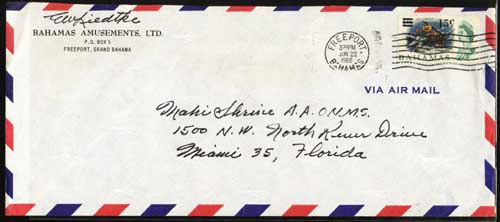 EWLiedtke
BAHAMAS AMUSEMENTS, LTD.
P.O. BOX 5
FREEPORT, GRAND BAHAMA
FREEPORT
PM
JUN 22
1966
BAHAMAS
15c
BAHAMAS
VIA AIR MAIL
Mahi Shrine A.A.O.N.M.S.
1500 N.W. North River Drive
Miami 35, Florida